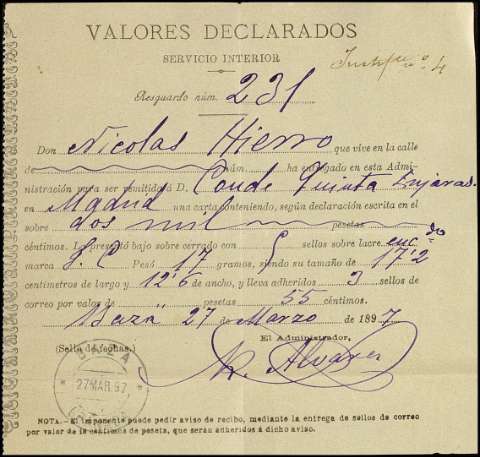 VALORES DECLARADOS
SERVICIO INTERIOR
Resguardo núm. 231
Don Nicolas Hierro que vive en la calle
de núm. ha entregado en esta Admi-
nistración para ser remitida á D. Conde Quinta Enjaras.
en Madrid una carta conteniendo, según declaración escrita en el
sobre dos mil pesetas
céntimos. La presentó bajo sobre cerrado con 5 sellos sobre lacre
marca J. C Pesó 17 gramos, siendo su tamaño de 17'2
centímetros de largo y 12'6 de ancho, y lleva adheridos 3 sellos de
correo por valor de pesetas 55 céntimos.
Baza 27 de Marzo de 1897
El Administrador,
(Sello de fechas.)
27 MAR 97
N. Alvarez
NOTA.—El imponente puede pedir aviso de recibo, mediante la entrega de sellos de correo
por valor de céntimos de peseta, que serán adheridos á dicho aviso.